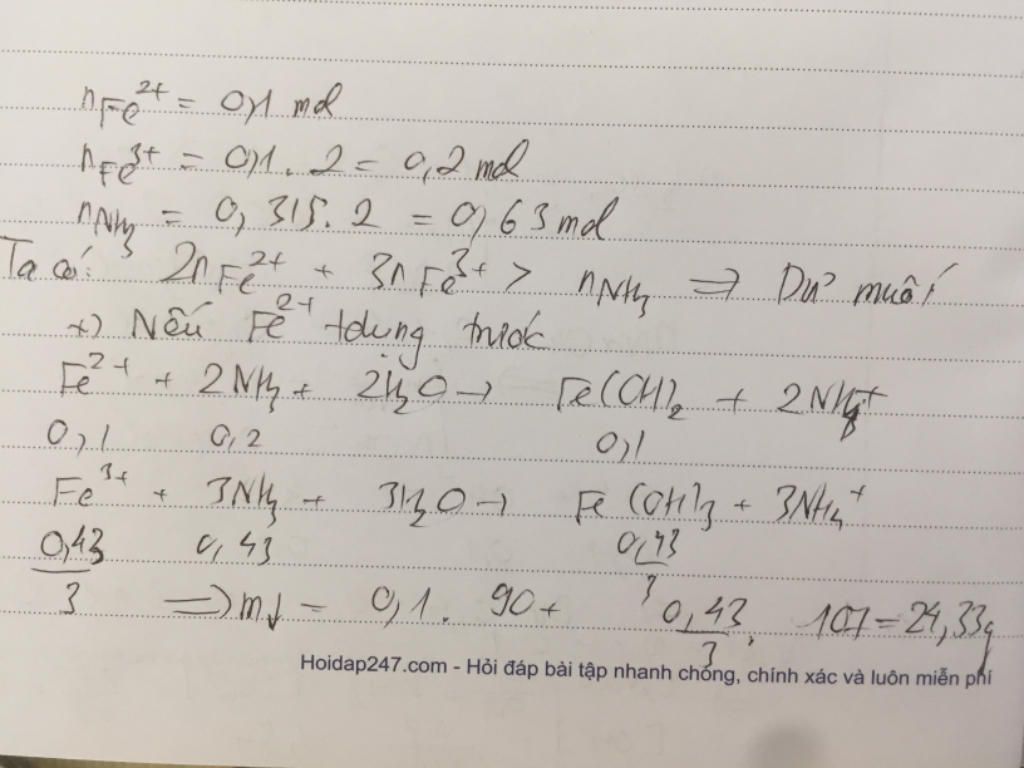 nFe²⁺ = 0,1 mol
nFe³⁺ = 0,1. 2 = 0,2 mol
nNH₃ = 0,315. 2 = 0,63 mol
Ta có: 2nFe²⁺ + 3nFe³⁺ > nNH₃ ⇒ Dư muối
+) Nếu Fe²⁺ tdụng trước
Fe²⁺ + 2NH₃ + 2H₂O → Fe(OH)₂ + 2NH₄⁺
0,1 0,2 0,1
Fe³⁺ + 3NH₃ + 3H₂O → Fe(OH)₃ + 3NH₄⁺
0,43/3 0,43 0,43/3
⇒ m↓ = 0,1. 90 + 0,43/3. 107 = 24,33g
Hoidap247.com - Hỏi đáp bài tập nhanh chóng, chính xác và luôn miễn phí